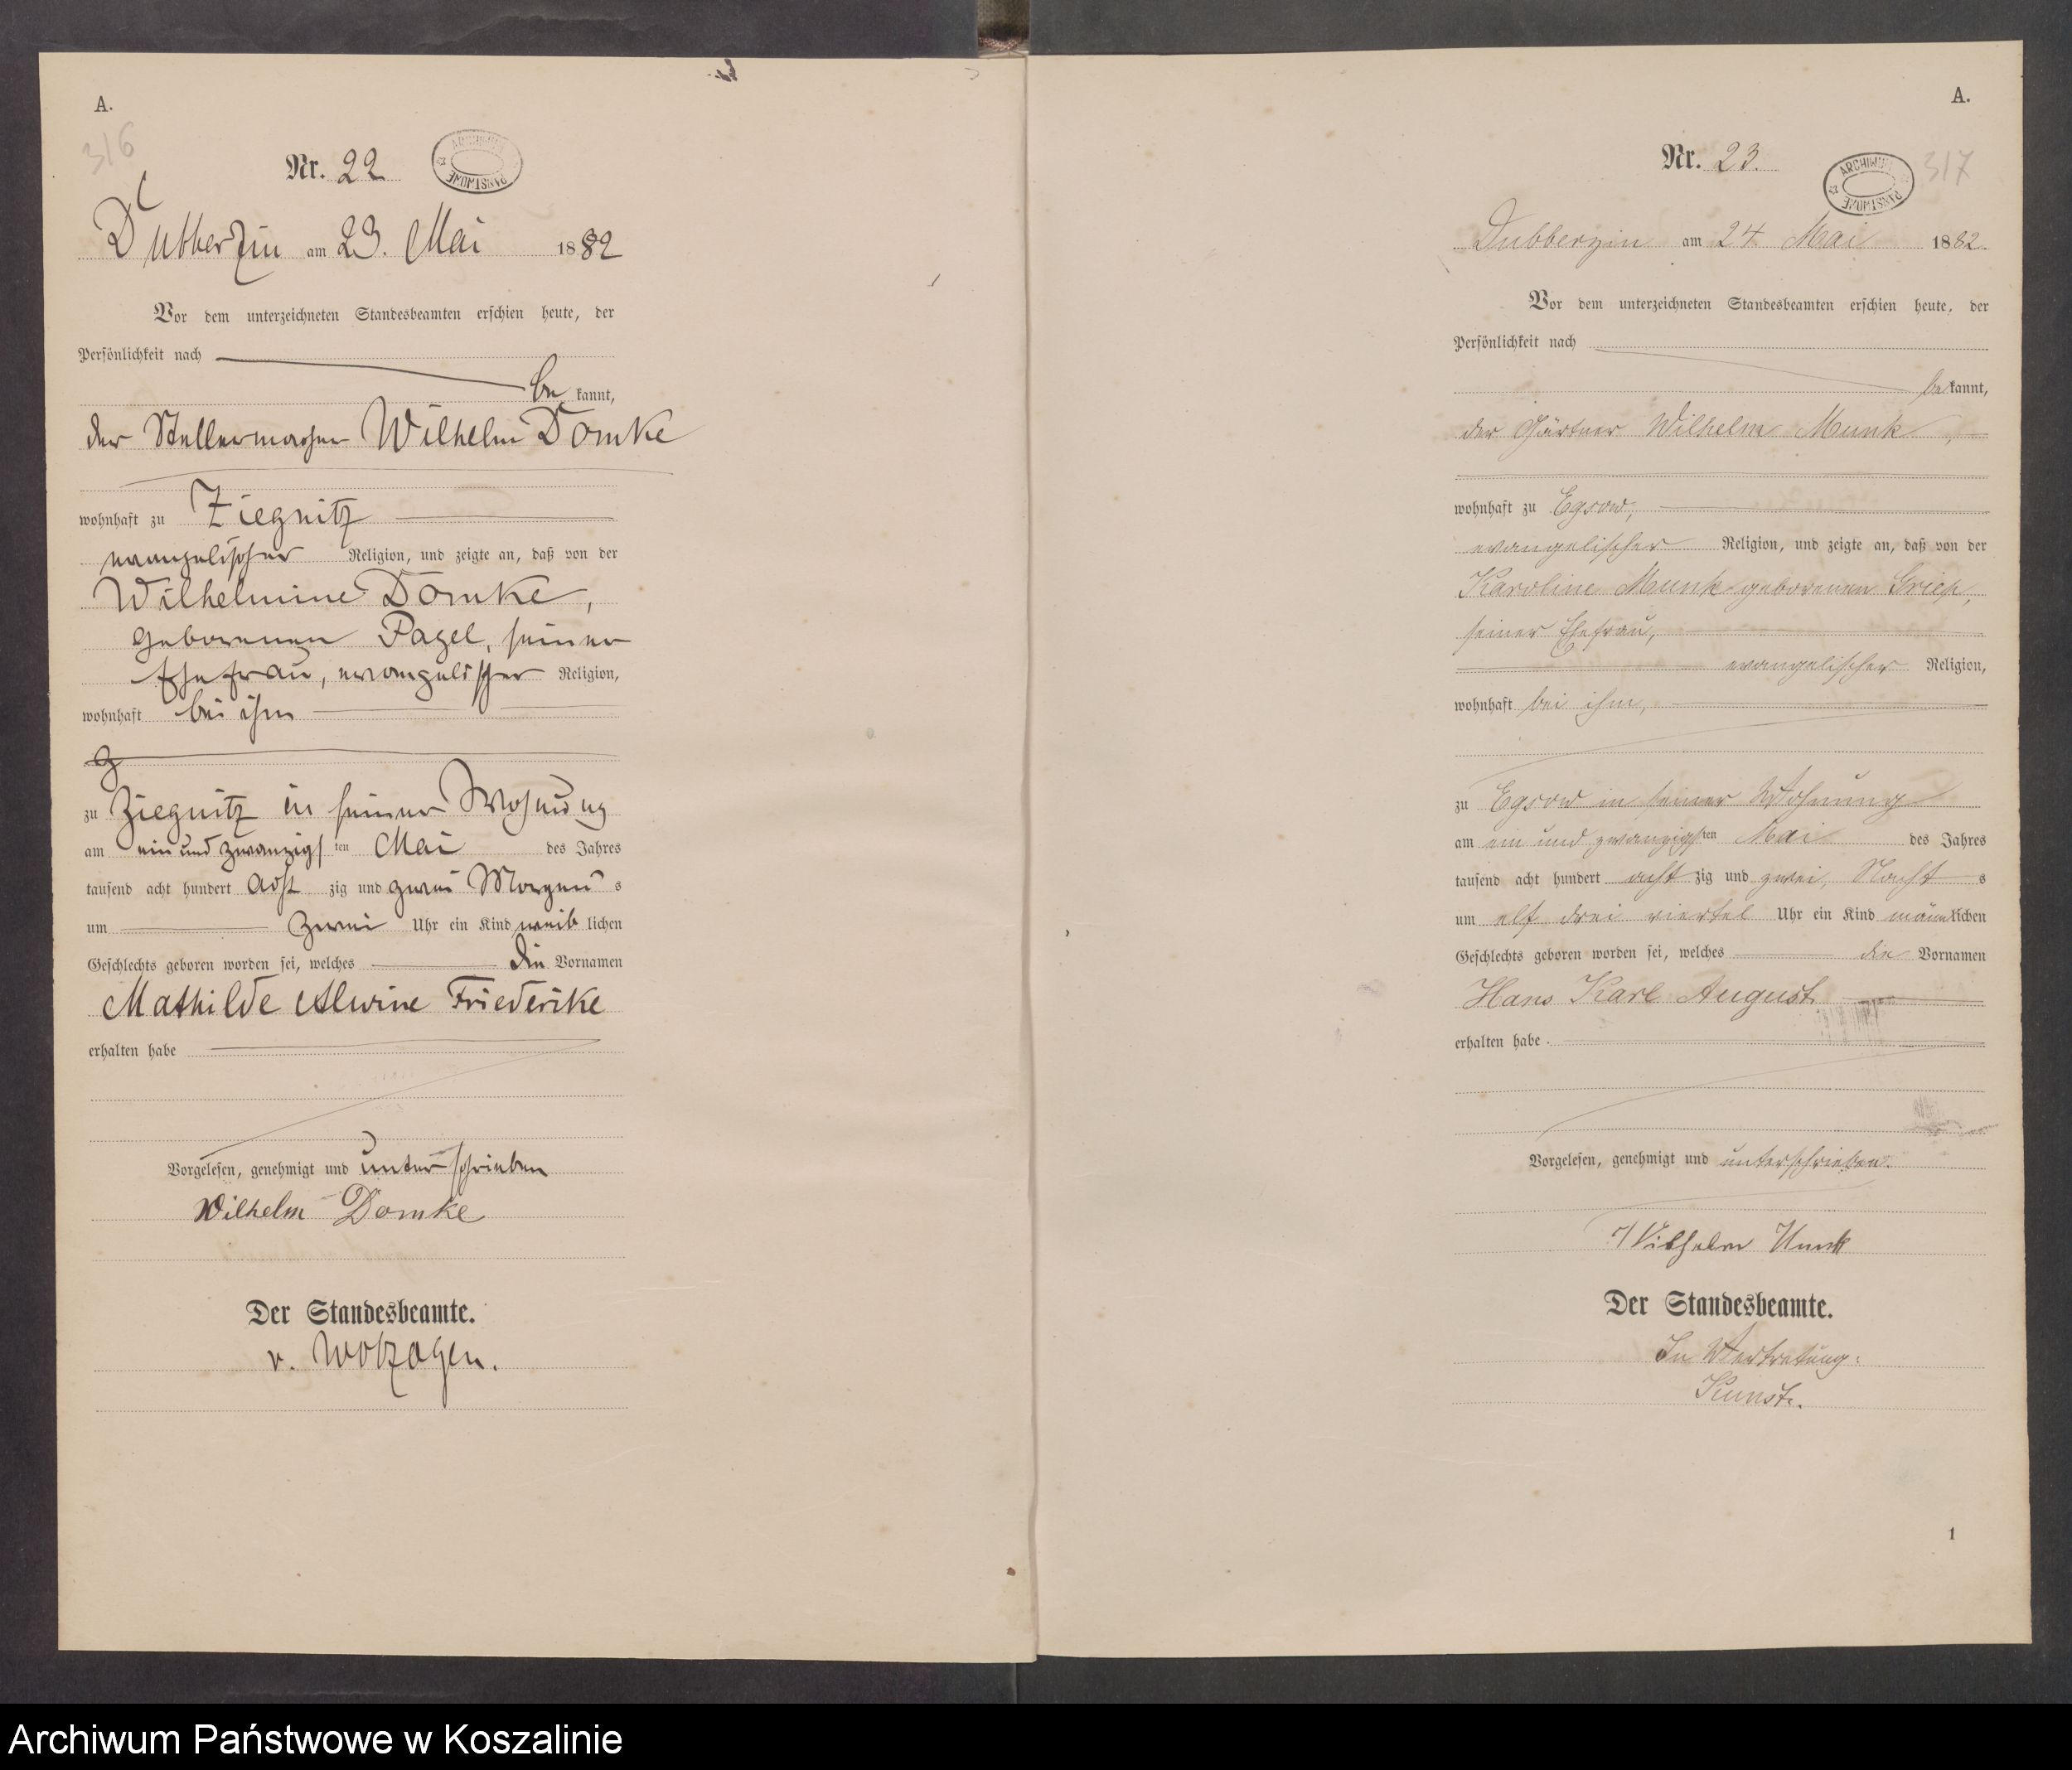 A.
316
Nr. 22
ARCHIWUM PAŃSTWOWE
Dubberzin am 23. Mai 1882
Vor dem unterzeichneten Standesbeamten erschien heute, der
Persönlichkeit nach
be kannt,
der Stellermacher Wilhelm Domke
wohnhaft zu Ziegnitz
evangelischer Religion, und zeigte an, daß von der
Wilhelmine Domke,
geborenen Pagel, seiner
Ehefrau, evangelischer Religion,
wohnhaft bei ihm
zu Ziegnitz in seiner Wohnung
am ein und zwanzigsten Mai des Jahres
tausend acht hundert acht zig und zwei Morgens
um zwei Uhr ein Kind weib lichen
Geschlechts geboren worden sei, welches die Vornamen
Mathilde Alwine Friederike
erhalten habe
Vorgelesen, genehmigt und unterschrieben
Wilhelm Domke
Der Standesbeamte.
v. Wolzogen.
A.
317
Nr. 23.
ARCHIWUM PAŃSTWOWE
Dubberzin am 24 Mai 1882.
Vor dem unterzeichneten Standesbeamten erschien heute, der
Persönlichkeit nach
be kannt,
der Gärtner Wilhelm Munk,
wohnhaft zu Egsow,
evangelischer Religion, und zeigte an, daß von der
Karoline Munk geborenen Griep,
seiner Ehefrau,
evangelischer Religion,
wohnhaft bei ihm,
zu Egsow in seiner Wohnung
am ein und zwanzigsten Mai des Jahres
tausend acht hundert acht zig und zwei, Nachts
um elf drei viertel Uhr ein Kind männlichen
Geschlechts geboren worden sei, welches die Vornamen
Hans Karl August
erhalten habe
Vorgelesen, genehmigt und unterschrieben.
Wilhelm Munk
Der Standesbeamte.
In Vertretung:
Kunst.
1
Archiwum Państwowe w Koszalinie